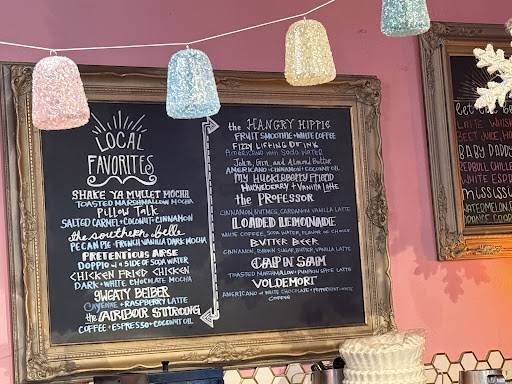 LOCAL
FAVORITES
SHAKE YA MULLET MOCHA
TOASTED MARSHMALLOW MOCHA
Pillow Talk
SALTED CARMEL + COCONUT + CINNAMON
the southern belle
PECAN PIE + FRENCH VANILLA DARK MOCHA
PRETENTIOUS ARSE
DOPPIO w/ a SIDE OF SODA WATER
CHICKEN FRIED CHICKEN
DARK + WHITE CHOCOLATE MOCHA
SWEATY BEIBER
CAYENNE + RASPBERRY LATTE
the ARBOR STRONG
COFFEE + ESPRESSO + COCONUT OIL
the HANGRY HIPPIE
FRUIT SMOOTHIE + WHITE COFFEE
FIZZY LIFTING DRINK
AMERICANO with SODA WATER
John, Gin, and Almond Butter
AMERICANO + CINNAMON + COCONUT OIL
MY HUCKLEBERRY FRIEND
HUCKLEBERRY + VANILLA LATTE
the PROFESSOR
CINNAMON, NUTMEG, CARDAMON VANILLA LATTE
LOADED LEMONADE
WHITE COFFEE, SODA WATER, FLAVOR OF CHOICE
BUTTER BEER
CINNAMON, BROWN SUGAR, BUTTER, VANILLA LATTE
CAP N SAM
TOASTED MARSHMALLOW + PUMPKIN SPICE LATTE
VOLDEMORT
AMERICANO w/ WHITE CHOCOLATE + PEPPERMINT WHITE
COFFEE
LATTE
WHISK
BEET JUICE, HO
BABY DADDY
WHITE
MISSISSI
WATERMELON,